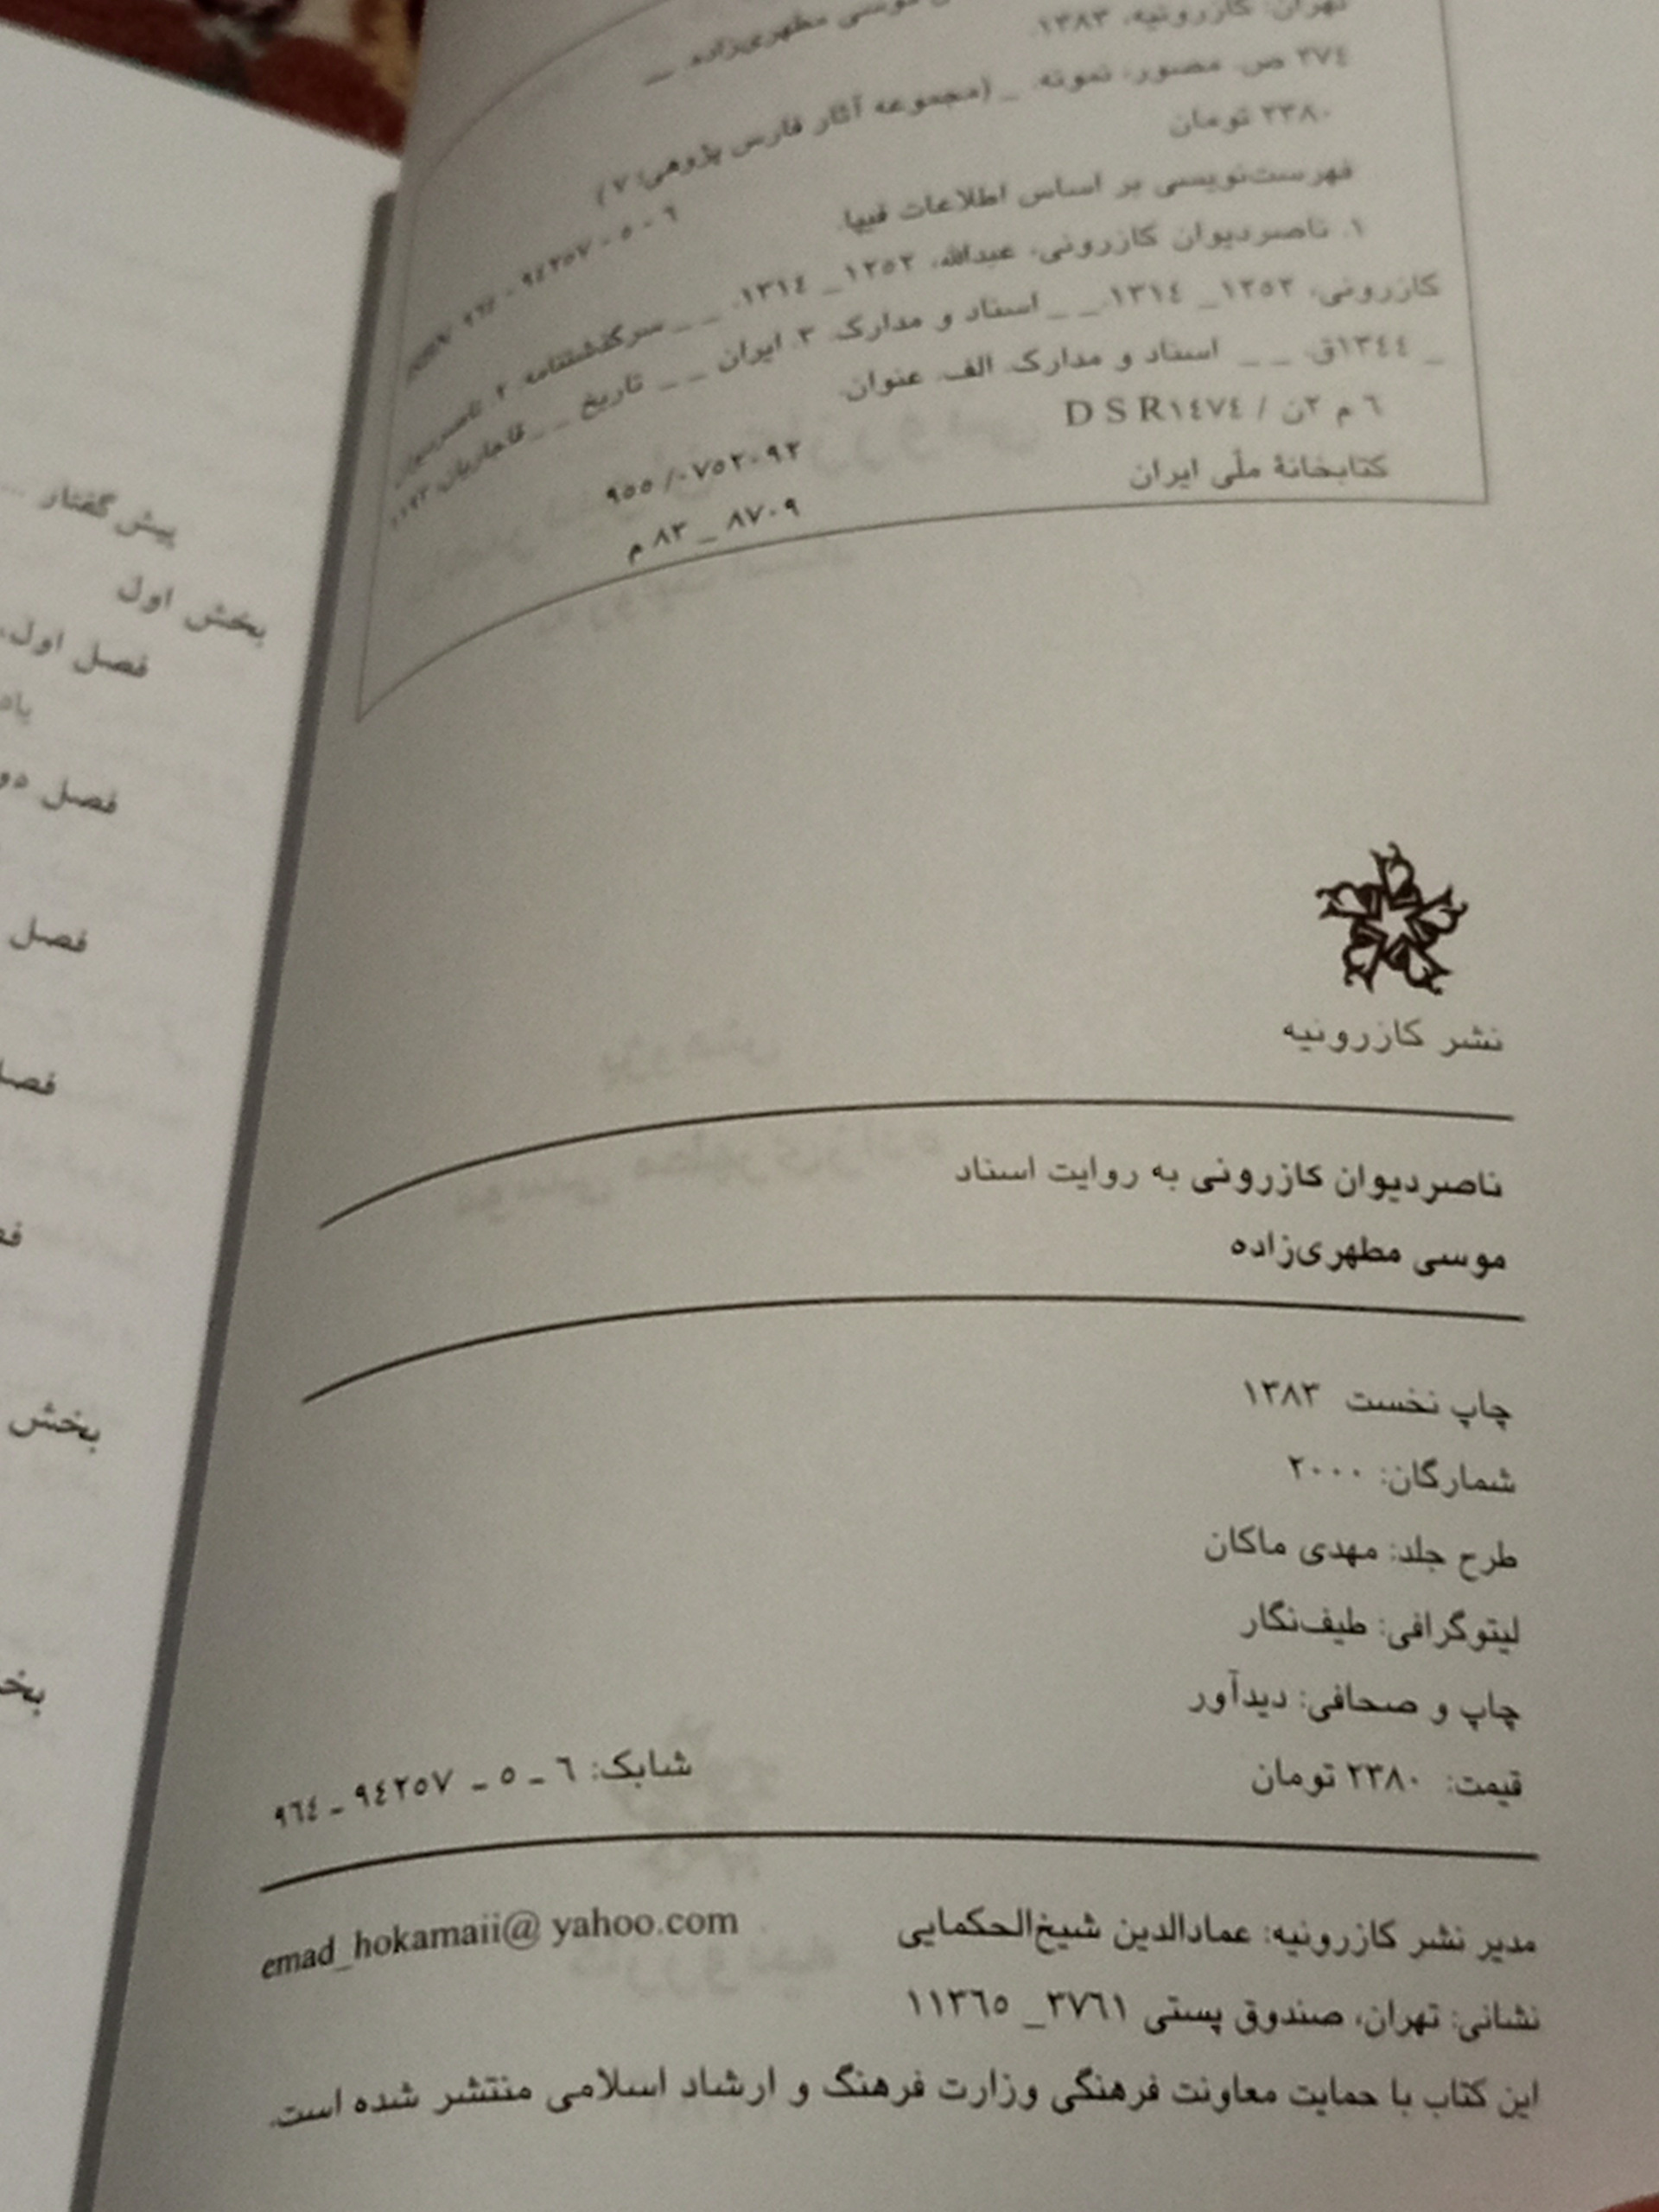 موسی مطهری‌زاده. _
تهران: کازرونیه، ۱۳۸۳.
۲۷٤ ص. مصور، نمونه. _ (مجموعه آثار فارس پژوهی؛ ۷)
۲۳۸۰ تومان
ISBN: ۹٦٤ - ۹٤۲٥۷ - ٥ - ٦
فهرست‌نویسی بر اساس اطلاعات فیپا.
۱. ناصردیوان کازرونی، عبدالله، ۱۲٥۲_ ۱۳۱٤. _ _ سرگذشتنامه. ۲. ناصردیوان
کازرونی، ۱۲٥۲_ ۱۳۱٤._ _ اسناد و مدارک. ۳. ایران _ _ تاریخ _ _ قاجاریان، ۱۱۹۳
_ ۱۳٤٤ق. _ _ اسناد و مدارک. الف. عنوان.
٦ م ۲ن / DSR۱٤۷٤
۹٥٥/۰۷٥۲۰۹۲
کتابخانهٔ ملّی ایران
۸۷۰۹ _ ۸۳ م
نشر کازرونیه
ناصردیوان کازرونی به روایت اسناد
موسی مطهری‌زاده
چاپ نخست ۱۳۸۳
شمارگان: ۲۰۰۰
طرح جلد: مهدی ماکان
لیتوگرافی: طیف‌نگار
چاپ و صحافی: دیدآور
قیمت: ۲۳۸۰ تومان
شابک: ٦ ـ ٥ ـ ۹٤۲٥۷ ـ ۹٦٤
مدیر نشر کازرونیه: عمادالدین شیخ‌الحکمایی
emad_hokamaii@ yahoo.com
نشانی: تهران، صندوق پستی ۳۷٦۱_ ۱۱۳٦٥
این کتاب با حمایت معاونت فرهنگی وزارت فرهنگ و ارشاد اسلامی منتشر شده است.
پیش‌گفتار ...
بخش اول
فصل اول.
فصل
فصل
بخش